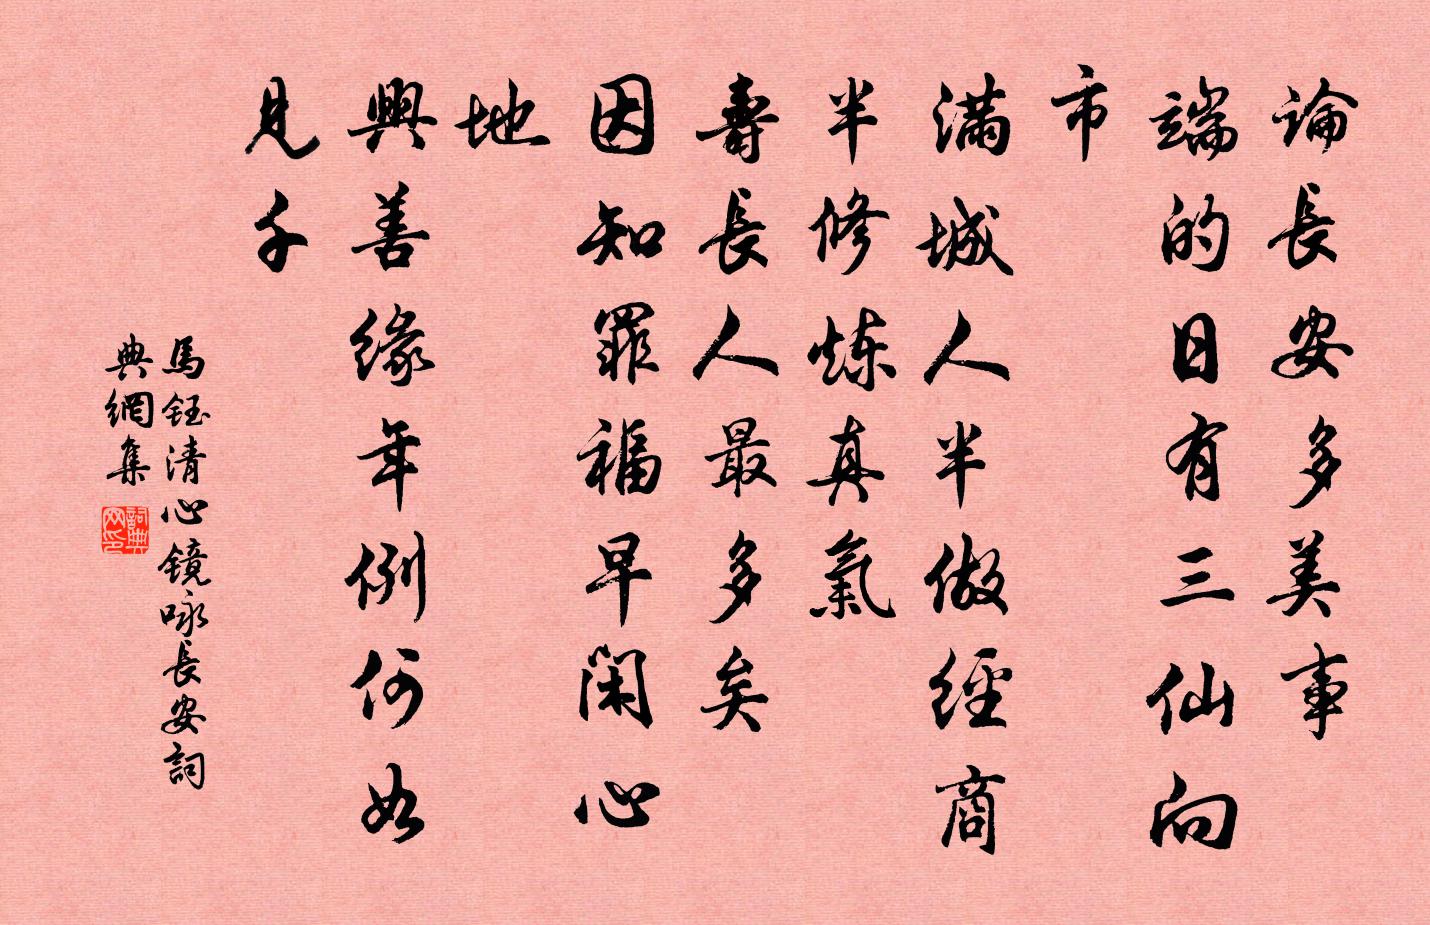 論長安多美事
端的日有三仙向
市
滿城人半做經商
半修炼真氣
壽長人最多矣
因知罪福早闲心
地
興善缘年例何如
見千
馬鈺清心鏡咏長安詞
典網集
詞典网印